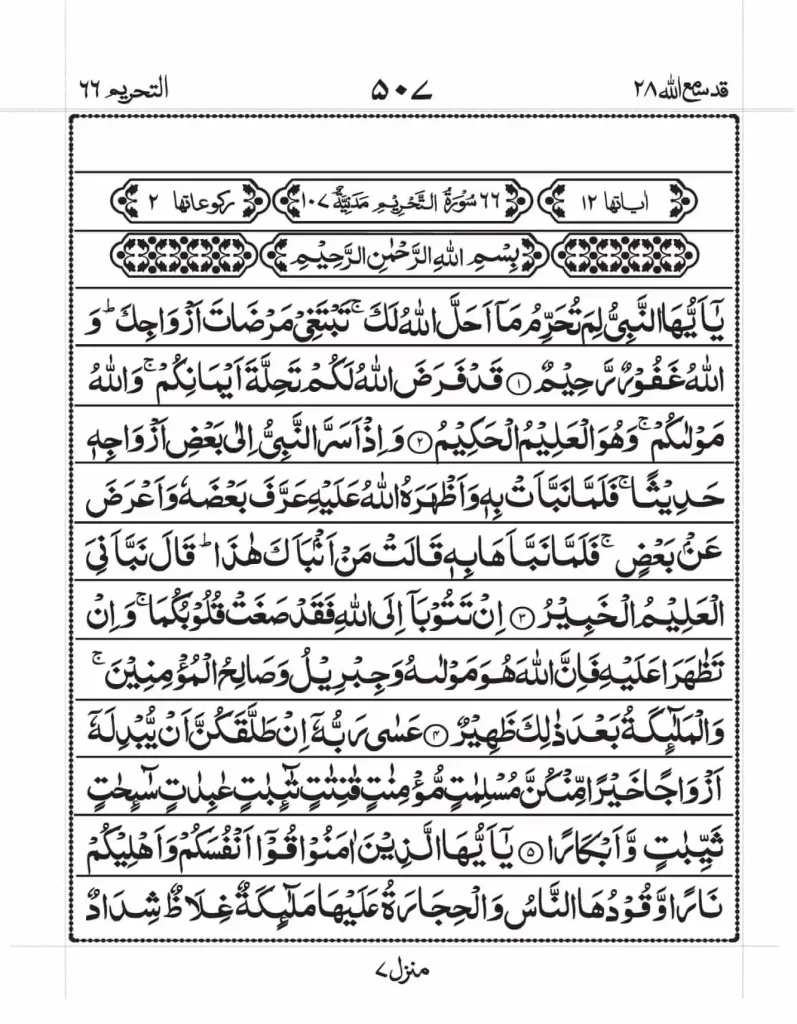 قد سمع الله ٢٨ ٥٠٧ التحريم ٦٦
اٰياتها ١٢ ٦٦ سُوْرَةُ التَّحْرِيْمِ مَدَنِيَّةٌ ١٠٧ ركوعاتها ٢
بِسْمِ اللهِ الرَّحْمٰنِ الرَّحِيْمِ
يٰۤاَيُّهَا النَّبِيُّ لِمَ تُحَرِّمُ مَاۤ اَحَلَّ اللهُ لَكَ ۚ تَبْتَغِيْ مَرْضَاتَ اَزْوَاجِكَ ؕ وَ
اللهُ غَفُوْرٌ رَّحِيْمٌ ۝١ قَدْ فَرَضَ اللهُ لَكُمْ تَحِلَّةَ اَيْمَانِكُمْ ۚ وَاللهُ
مَوْلٰىكُمْ ۚ وَهُوَ الْعَلِيْمُ الْحَكِيْمُ ۝٢ وَاِذْ اَسَرَّ النَّبِيُّ اِلٰى بَعْضِ اَزْوَاجِهٖ
حَدِيْثًا ۚ فَلَمَّا نَبَّاَتْ بِهٖ وَاَظْهَرَهُ اللهُ عَلَيْهِ عَرَّفَ بَعْضَهٗ وَاَعْرَضَ
عَنْۢ بَعْضٍ ۚ فَلَمَّا نَبَّاَهَا بِهٖ قَالَتْ مَنْ اَنْۢبَاَكَ هٰذَا ؕ قَالَ نَبَّاَنِيَ
الْعَلِيْمُ الْخَبِيْرُ ۝٣ اِنْ تَتُوْبَاۤ اِلَى اللهِ فَقَدْ صَغَتْ قُلُوْبُكُمَا ۚ وَاِنْ
تَظٰهَرَا عَلَيْهِ فَاِنَّ اللهَ هُوَ مَوْلٰىهُ وَجِبْرِيْلُ وَصَالِحُ الْمُؤْمِنِيْنَ ۚ
وَالْمَلٰٓئِكَةُ بَعْدَ ذٰلِكَ ظَهِيْرٌ ۝٤ عَسٰى رَبُّهٗۤ اِنْ طَلَّقَكُنَّ اَنْ يُّبْدِلَهٗۤ
اَزْوَاجًا خَيْرًا مِّنْكُنَّ مُسْلِمٰتٍ مُّؤْمِنٰتٍ قٰنِتٰتٍ تٰٓئِبٰتٍ عٰبِدٰتٍ سٰٓئِحٰتٍ
ثَيِّبٰتٍ وَّاَبْكَارًا ۝٥ يٰۤاَيُّهَا الَّذِيْنَ اٰمَنُوْا قُوْۤا اَنْفُسَكُمْ وَاَهْلِيْكُمْ
نَارًا وَّقُوْدُهَا النَّاسُ وَالْحِجَارَةُ عَلَيْهَا مَلٰٓئِكَةٌ غِلَاظٌ شِدَادٌ
منزل ٧